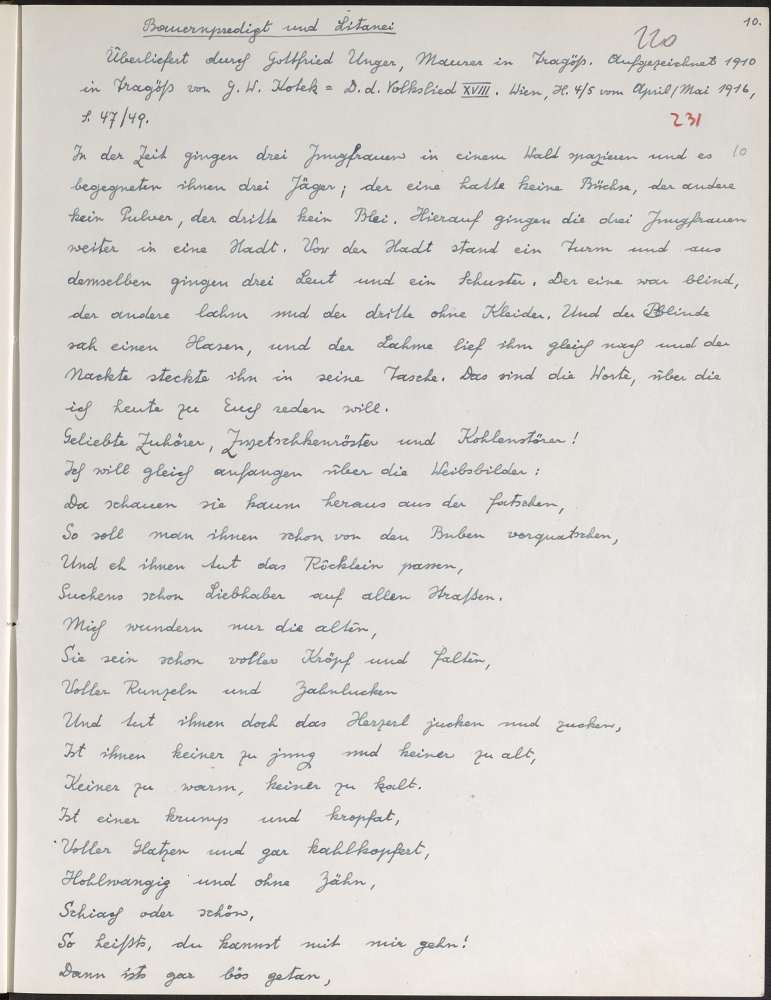 10.
Bauernpredigt und Litanei
220
Überliefert durch Gottfried Unger, Maurer in Tragöß. Aufgezeichnet 1910
in Tragöß von G. W. Kotek = D. d. Volkslied XVIII. Wien, H. 4/5 vom April/Mai 1916,
S. 47/49.
231
In der Zeit gingen drei Jungfrauen in einem Wald spazieren und es 10
begegneten ihnen drei Jäger; der eine hatte keine Büchse, der andere
kein Pulver, der dritte kein Blei. Hierauf gingen die drei Jungfrauen
weiter in eine Stadt. Vor der Stadt stand ein Turm und aus
demselben gingen drei Leut und ein Schuster. Der eine war blind,
der andere lahm und der dritte ohne Kleider. Und der Blinde
sah einen Hasen, und der Lahme lief ihm gleich nach und der
Nackte steckte ihn in seine Tasche. Das sind die Worte, über die
ich heute zu Euch reden will.
Geliebte Zuhörer, Zwetschkenröster und Kohlenstörer!
Ich will gleich anfangen über die Weibsbilder:
Da schauen sie kaum heraus aus der Fatschen,
So soll man ihnen schon von den Buben vorquatschen,
Und eh ihnen tut das Röcklein passen,
Suchens schon Liebhaber auf allen Straßen.
Mich wundern nur die alten,
Sie sein schon voller Kröpf und Falten,
Voller Runzeln und Zahnlucken
Und tut ihnen doch das Herzerl jucken und zucken,
Ist ihnen keiner zu jung und keiner zu alt,
Keiner zu warm, keiner zu kalt.
Ist einer krump und kropfat,
Voller Glatzen und gar kahlkopfert,
Hohlwangig und ohne Zähn,
Schiach oder schön,
So heißts, du kannst mit mir gehn!
Dann ists gar bös getan,